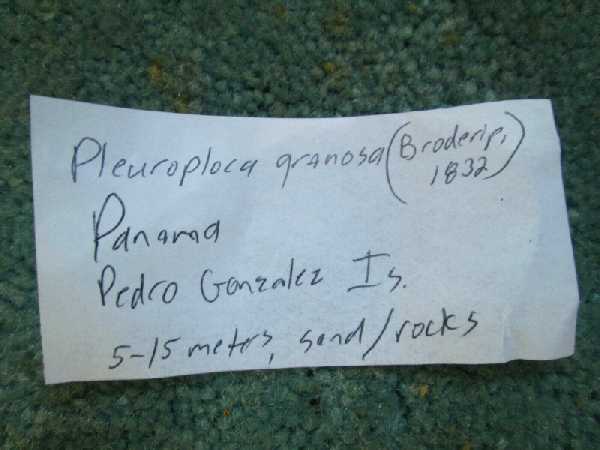 Pleuroploca granosa (Broderip,
1832)
Panama
Pedro Gonzalez Is.
5-15 meters, sand/rocks